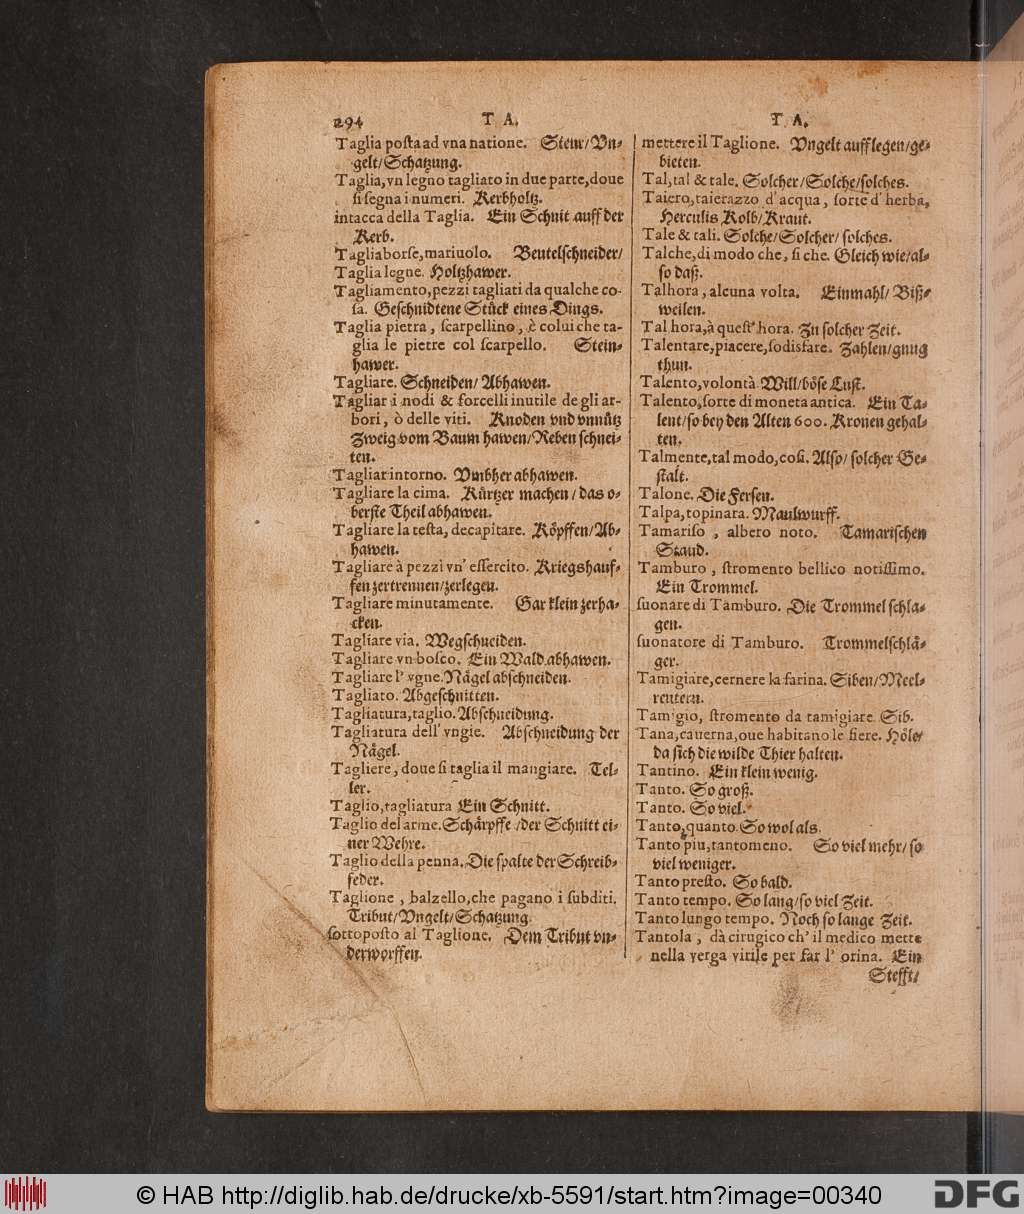 294 T A. T A.
Taglia poſta ad vna natione. Steur/Vn-
gelt/Schatzung.
Taglia,vn legno tagliato in due parte,doue
ſi ſegna i numeri. Kerbholtz.
intacca della Taglia. Ein Schnit auff der
Kerb.
Tagliaborſe,mariuolo. Beutelſchneider/
Taglia legne. Holtzhawer.
Tagliamento,pezzi tagliati da qualche co-
ſa. Geſchnidtene Stůck eines Dings.
Taglia pietra, ſcarpellino, è colui che ta-
glia le pietre col ſcarpello. Stein-
hawer.
Tagliare. Schneiden/ Abhawen.
Tagliar i nodi & forcelli inutile de gli ar-
bori, ò delle viti. Knoden vnd vnnůtz
Zweig vom Baum hawen/Reben ſchnei-
ten.
Tagliar intorno. Vmbher abhawen.
Tagliare la cima. Kůrtzer machen / das o-
berſte Theil abhawen.
Tagliare la teſta, decapitare. Kȯpffen/Ab-
hawen.
Tagliare à pezzi vn' eſſercito. Kriegshauf-
fen zertrennen/zerlegen.
Tagliare minutamente. Gar klein zerha-
cken.
Tagliare via. Wegſchneiden.
Tagliare vn boſco. Ein Wald abhawen.
Tagliare l' vgne. Någel abſchneiden.
Tagliato. Abgeſchnitten.
Tagliatura,taglio. Abſchneidung.
Tagliatura dell' vngie. Abſchneidung der
Någel.
Tagliere, doue ſi taglia il mangiare. Tel-
ler.
Taglio,tagliatura Ein Schnitt.
Taglio del arme. Schårpffe /der Schnitt ei-
ner Wehre.
Taglio della penna. Die ſpalte der Schreib-
feder.
Taglione, balzello,che pagano i ſubditi.
Tribut/Vngelt/Schatzung.
ſottopoſto al Taglione. Dem Tribut vn-
derworffen.
mettere il Taglione. Vngelt aufflegen/ge-
bieten.
Tal,tal & tale. Solcher/Solche/ſolches.
Taiero,taierazzo d'acqua, ſorte d'herba,
Herculis Kolb/Kraut.
Tale & tali. Solche/Solcher/ ſolches.
Talche,di modo che, ſi che. Gleich wie/al-
ſo daß.
Talhora, alcuna volta. Einmahl/ Biß-
weilen.
Tal hora,à queſt' hora. Zu ſolcher Zeit.
Talentare,piacere,ſodisfare. Zahlen/gnug
thun.
Talento,volontà Will/bȯſe Luſt.
Talento,ſorte di moneta antica. Ein Ta-
lent/ſo bey den Alten 600. Kronen gehal-
ten.
Talmente,tal modo,coſi. Alſo/ ſolcher Ge-
ſtalt.
Talone. Die Ferſen.
Talpa,topinara. Maulwurff.
Tamariſo , albero noto. Tamariſchen
Staud.
Tamburo , ſtromento bellico notiſſimo.
Ein Trommel.
ſuonare di Tamburo. Die Trommel ſchla-
gen.
ſuonatore di Tamburo. Trommelſchlå-
ger.
Tamigiare,cernere la farina. Siben/Meel-
reutern.
Tamigio, ſtromento da tamigiare. Sib.
Tana,cauerna,oue habitano le fiere. Hȯle/
da ſich die wilde Thier halten.
Tantino. Ein klein wenig.
Tanto. So groß.
Tanto. So viel.
Tanto,quanto. So wol als.
Tanto piu,tantomeno. So viel mehr/ ſo
viel weniger.
Tanto preſto. So bald.
Tanto tempo. So lang/ſo viel Zeit.
Tanto lungo tempo. Noch ſo lange Zeit.
Tantola , dà cirugico ch' il medico mette
nella verga virile per far l' orina. Ein
Stefft/
© HAB http://diglib.hab.de/drucke/xb-5591/start.htm?image=00340
DFG